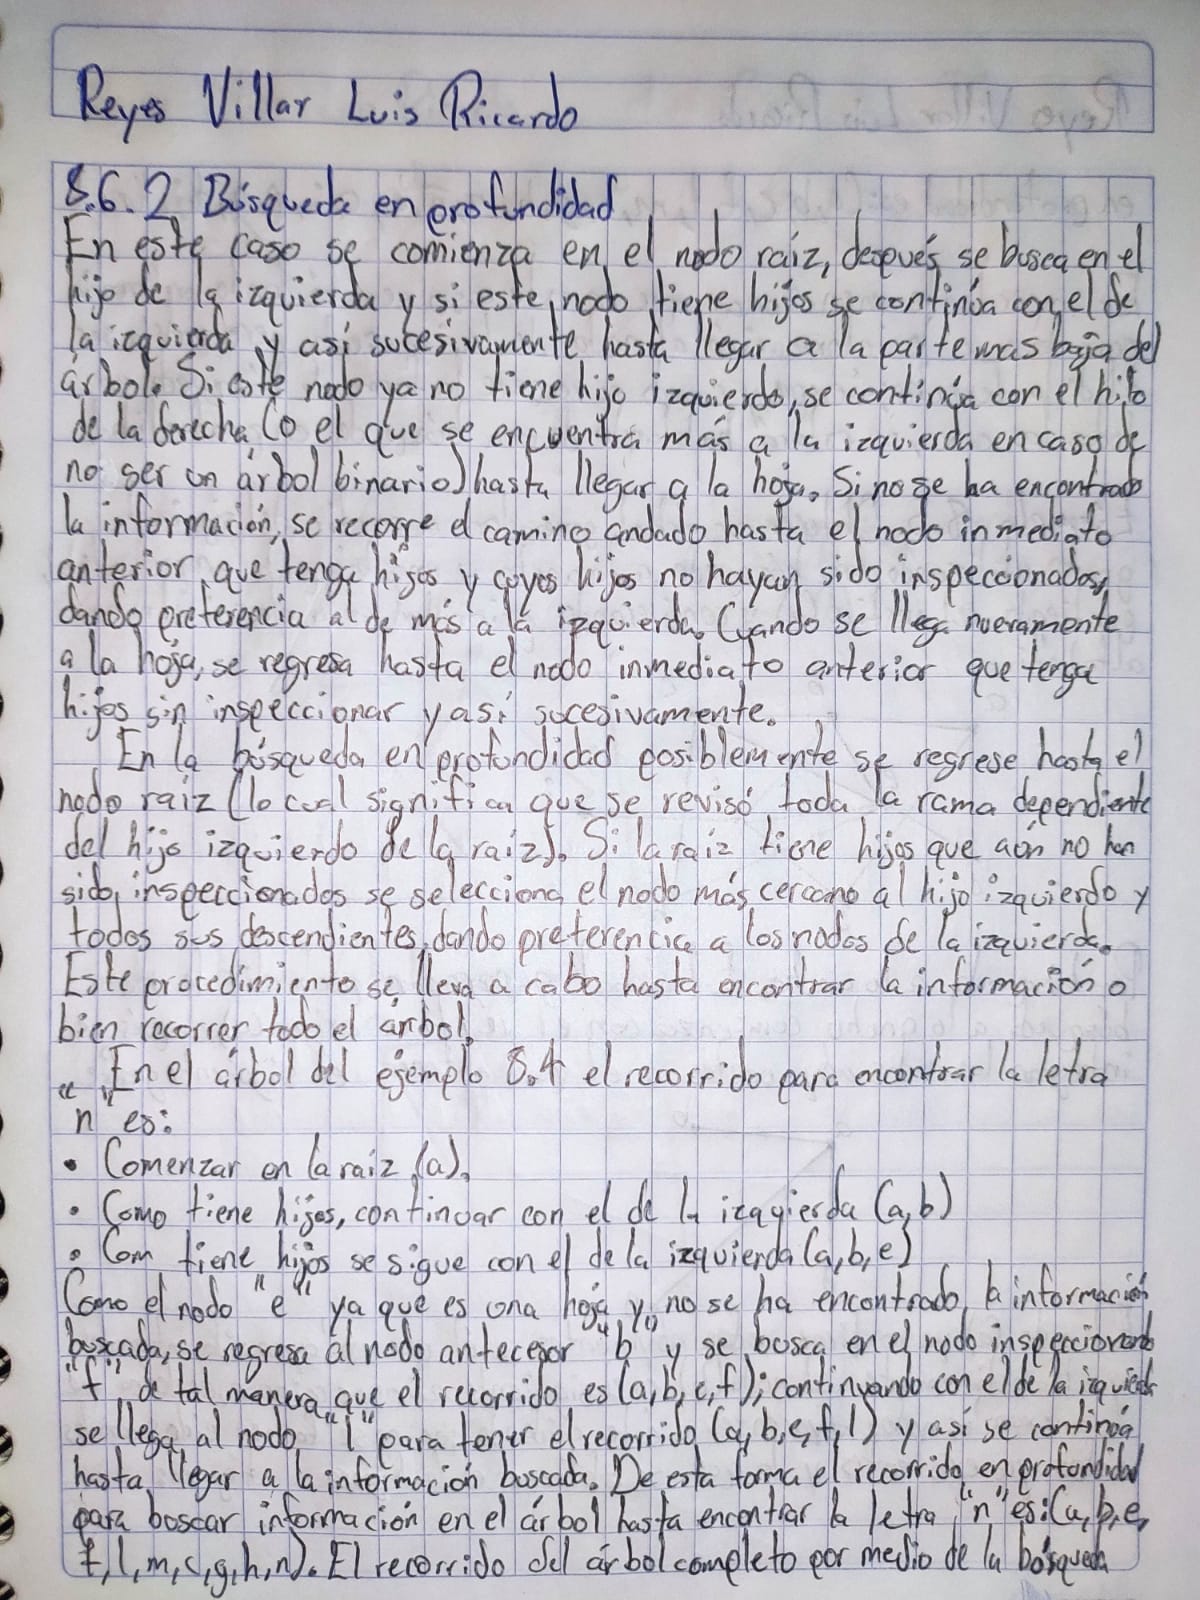 Reyes Villar Luis Ricardo
8.6.2 Búsqueda en profundidad
En este caso se comienza en el nodo raíz, después se busca en el
hijo de la izquierda y si este nodo tiene hijos se continúa con el de
la izquierda y así sucesivamente hasta llegar a la parte mas baja del
árbol. Si este nodo ya no tiene hijo izquierdo, se continúa con el hijo
de la derecha (o el que se encuentra más a la izquierda en caso de
no ser un árbol binario) hasta llegar a la hoja. Si no se ha encontrado
la información, se recorre el camino andado hasta el nodo inmediato
anterior que tenga hijos y cuyos hijos no hayan sido inspeccionados,
dando preferencia al de más a la izquierda. Cuando se llega nuevamente
a la hoja, se regresa hasta el nodo inmediato anterior que tenga
hijos sin inspeccionar y así sucesivamente.
En la búsqueda en profundidad posiblemente se regrese hasta el
nodo raíz (lo cual significa que se revisó toda la rama dependiente
del hijo izquierdo de la raíz). Si la raíz tiene hijos que aún no han
sido inspeccionados se selecciona el nodo más cercano al hijo izquierdo y
todos sus descendientes, dando preferencia a los nodos de la izquierda.
Este procedimiento se lleva a cabo hasta encontrar la información o
bien recorrer todo el árbol.
En el árbol del ejemplo 8.4 el recorrido para encontrar la letra
"n" es:
• Comenzar en la raíz (a).
• Como tiene hijos, continuar con el de la izquierda (a,b)
• Com tiene hijos se sigue con el de la izquierda (a,b,e)
Como el nodo "e" ya que es una hoja y no se ha encontrado la información
buscada, se regresa al nodo antecesor "b" y se busca en el nodo inspeccionado
"f", de tal manera que el recorrido es (a,b,e,f); continuando con el de la izquierda
se llega al nodo "l" para tener el recorrido (a,b,e,f,l) y así se continúa
hasta llegar a la información buscada. De esta forma el recorrido en profundidad
para buscar información en el árbol hasta encontrar la letra "n" es: (a,b,e,
f,l,m,c,g,h,n). El recorrido del árbol completo por medio de la búsqueda